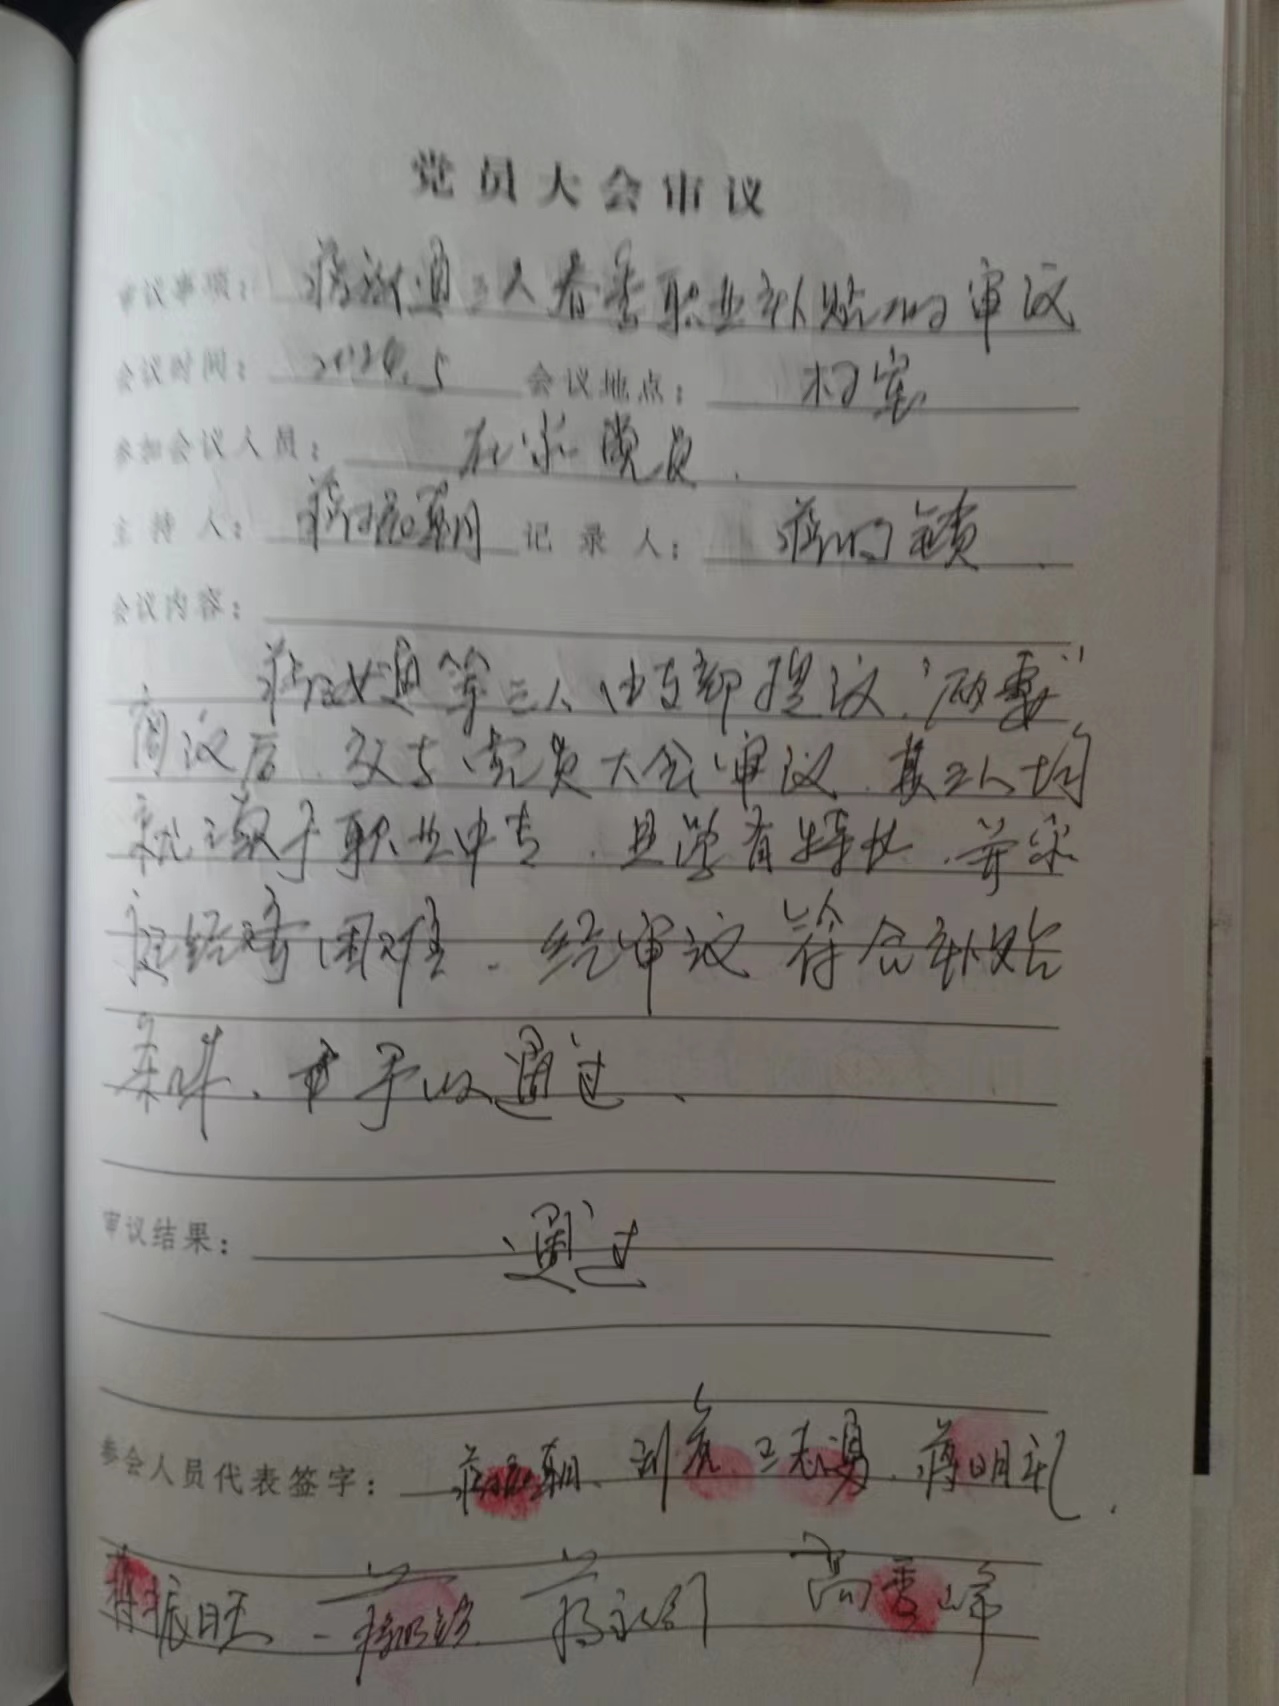 党员大会审议
审议事项：蒋 通三人春季职业补贴的审议
会议时间：2024.5 会议地点：村室
参加会议人员：在家党员.
主持人：蒋振朝 记录人：蒋明锁
会议内容：
蒋 通等三人由支部提议、"两委"
商议后、交与党员大会审议、其三人均
就读于职业中专、且学有特长、并家
庭经济困难、经审议符合补贴
条件、予以通过、
审议结果：通过
参会人员代表签字：蒋振朝、刘 、王志勇、蒋明礼.
蒋振旺 蒋明锁 蒋 高秀峰